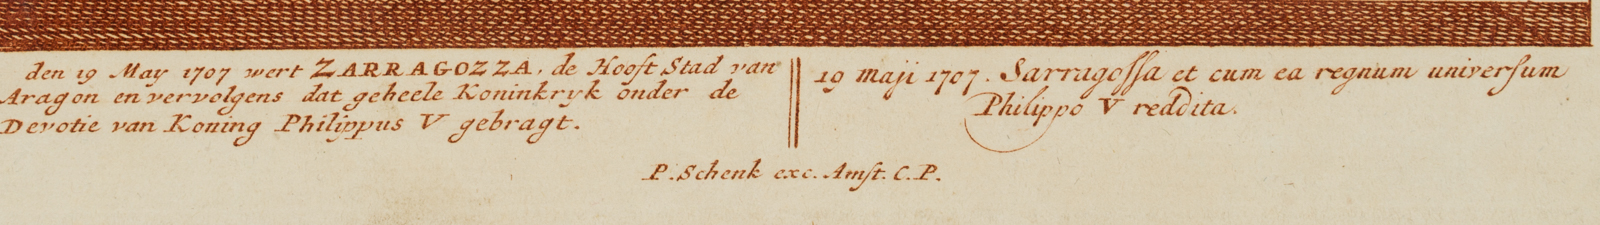 den 19 May 1707 wert ZARRAGOZZA, de Hooft Stad van
Aragon en vervolgens dat geheele Koninkryk onder de
Devotie van Koning Philippus V gebragt.
19 maji 1707. Sarragossa et cum ea regnum universum
Philippo V reddita.
P. Schenk exc. Amst. C. P.